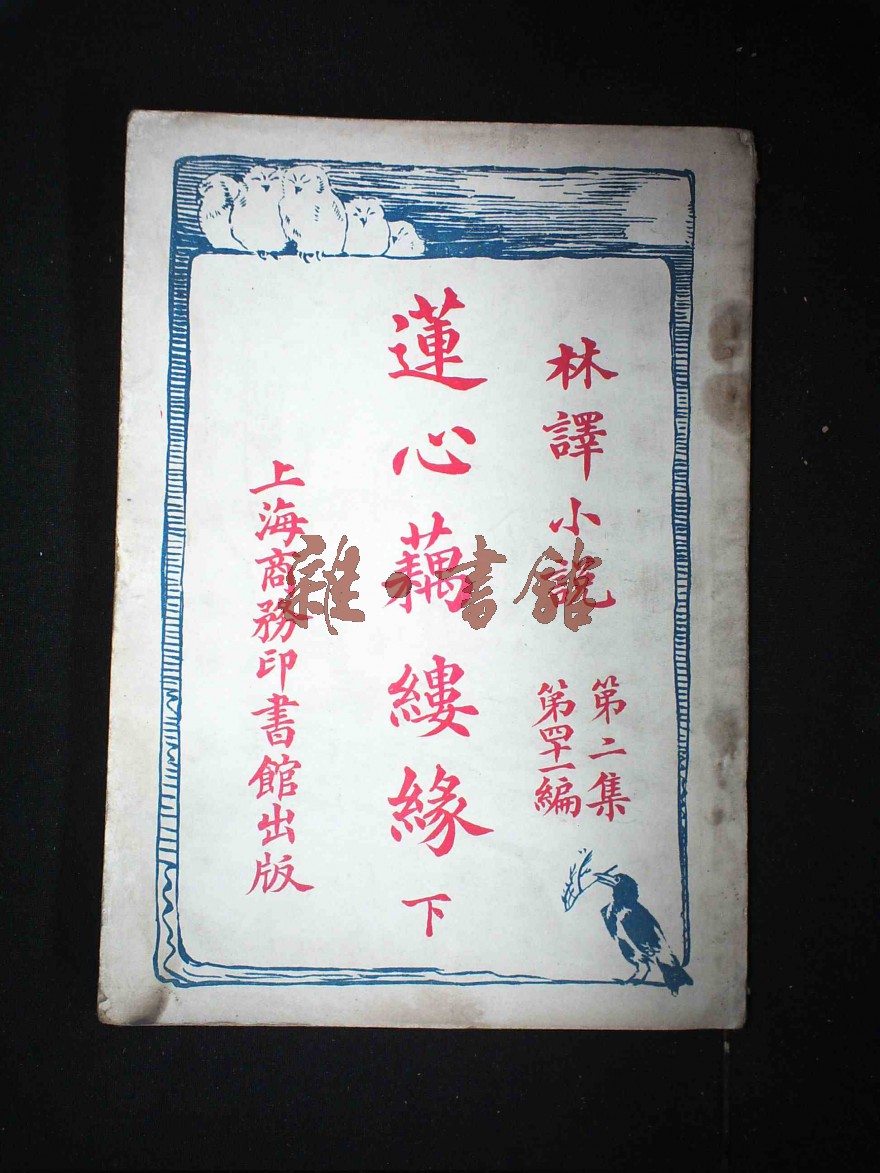 林譯小說
第二集
第四十一編
蓮心藕縷緣 下
上海商務印書館出版
雜·書館